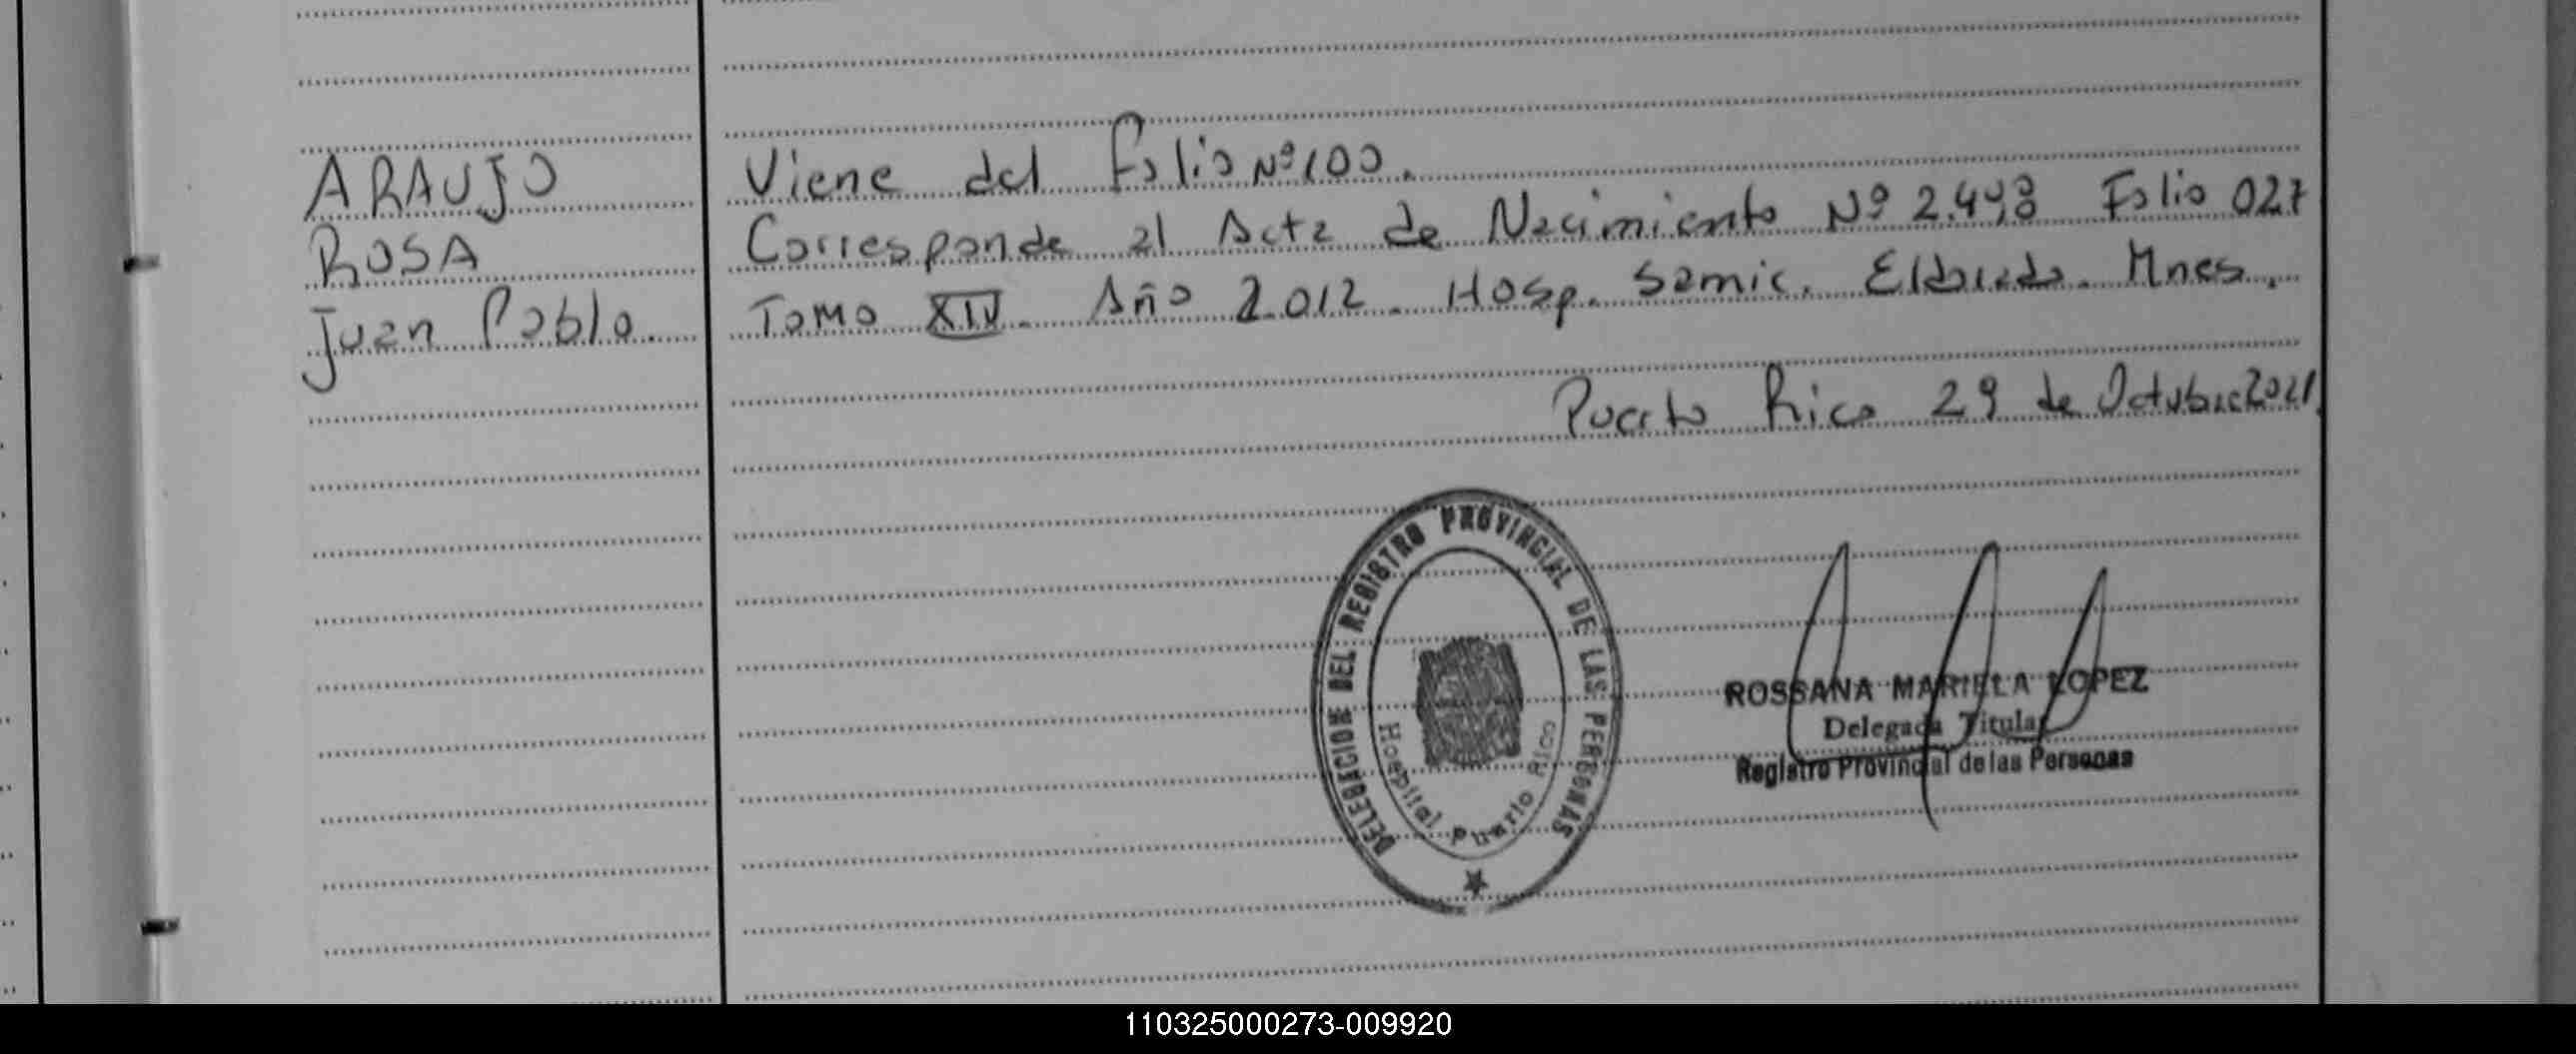 ARAUJO
ROSA
Juan Pablo.
Viene del Folio Nº 100.
Corresponde al Acta de Nacimiento Nº 2.498 Folio 027
Tomo XIV. Año 2.012. Hosp. Samic. Eldorado. Mnes.
Puerto Rico 29 de Octubre 2021.
DELEGACION DEL REGISTRO PROVINCIAL DE LAS PERSONAS
Hospital Puerto Rico
ROSSANA MARIELA LOPEZ
Delegada Titular
Registro Provincial de las Personas
110325000273-009920